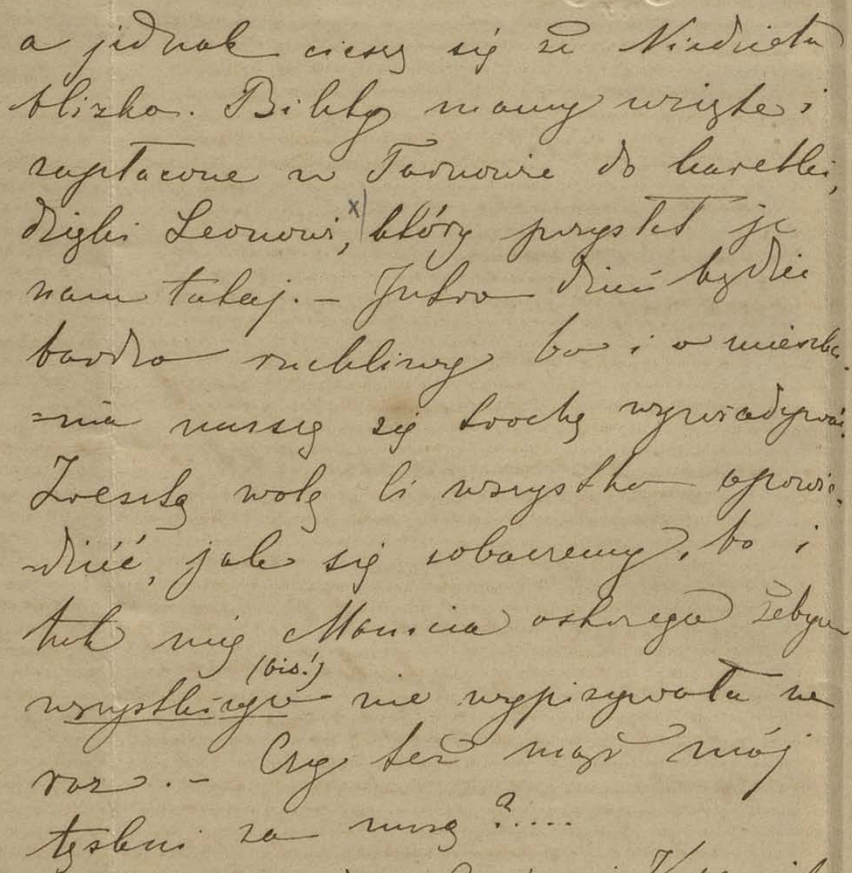 a jednak cieszę się że Niedziela
blizko. Bilety mamy wzięte i
zapłacone w Tarnowie do karetki,
dzięki Leonowi,x) który przysłał je
nam tutaj. – Jutro dzień będzie
bardzo ruchliwy bo i o mieszka-
=nia muszę się trochę wywiadywać.
Zresztą wolę Ci wszystko opowie-
-dzieć, jak się zobaczemy, bo i
tak mię Mamcia ostrzega żebym
(bis!)
wszystkiego nie wypisywała na
raz. – Czy też mąż mój
tęskni za mną?....